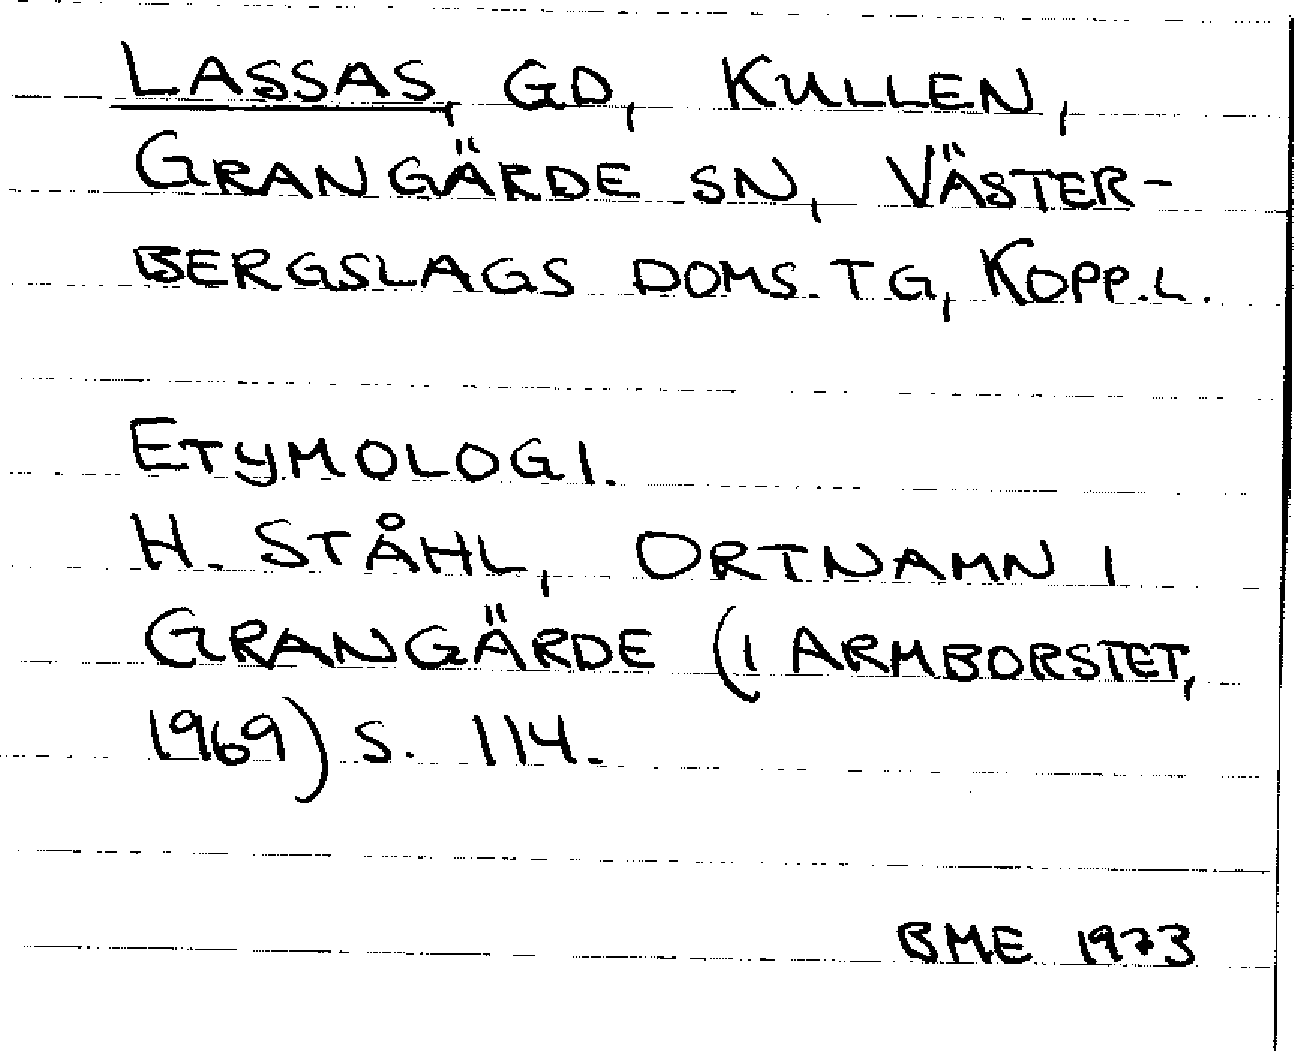 LASSAS, GD, KULLEN,
GRANGÄRDE SN, VÄSTER-
BERGSLAGS DOMS.TG, KOPP.L.
ETYMOLOGI.
H. STÅHL, ORTNAMN I
GRANGÄRDE (I ARMBORSTET,
1969) S. 114.
BME 1973